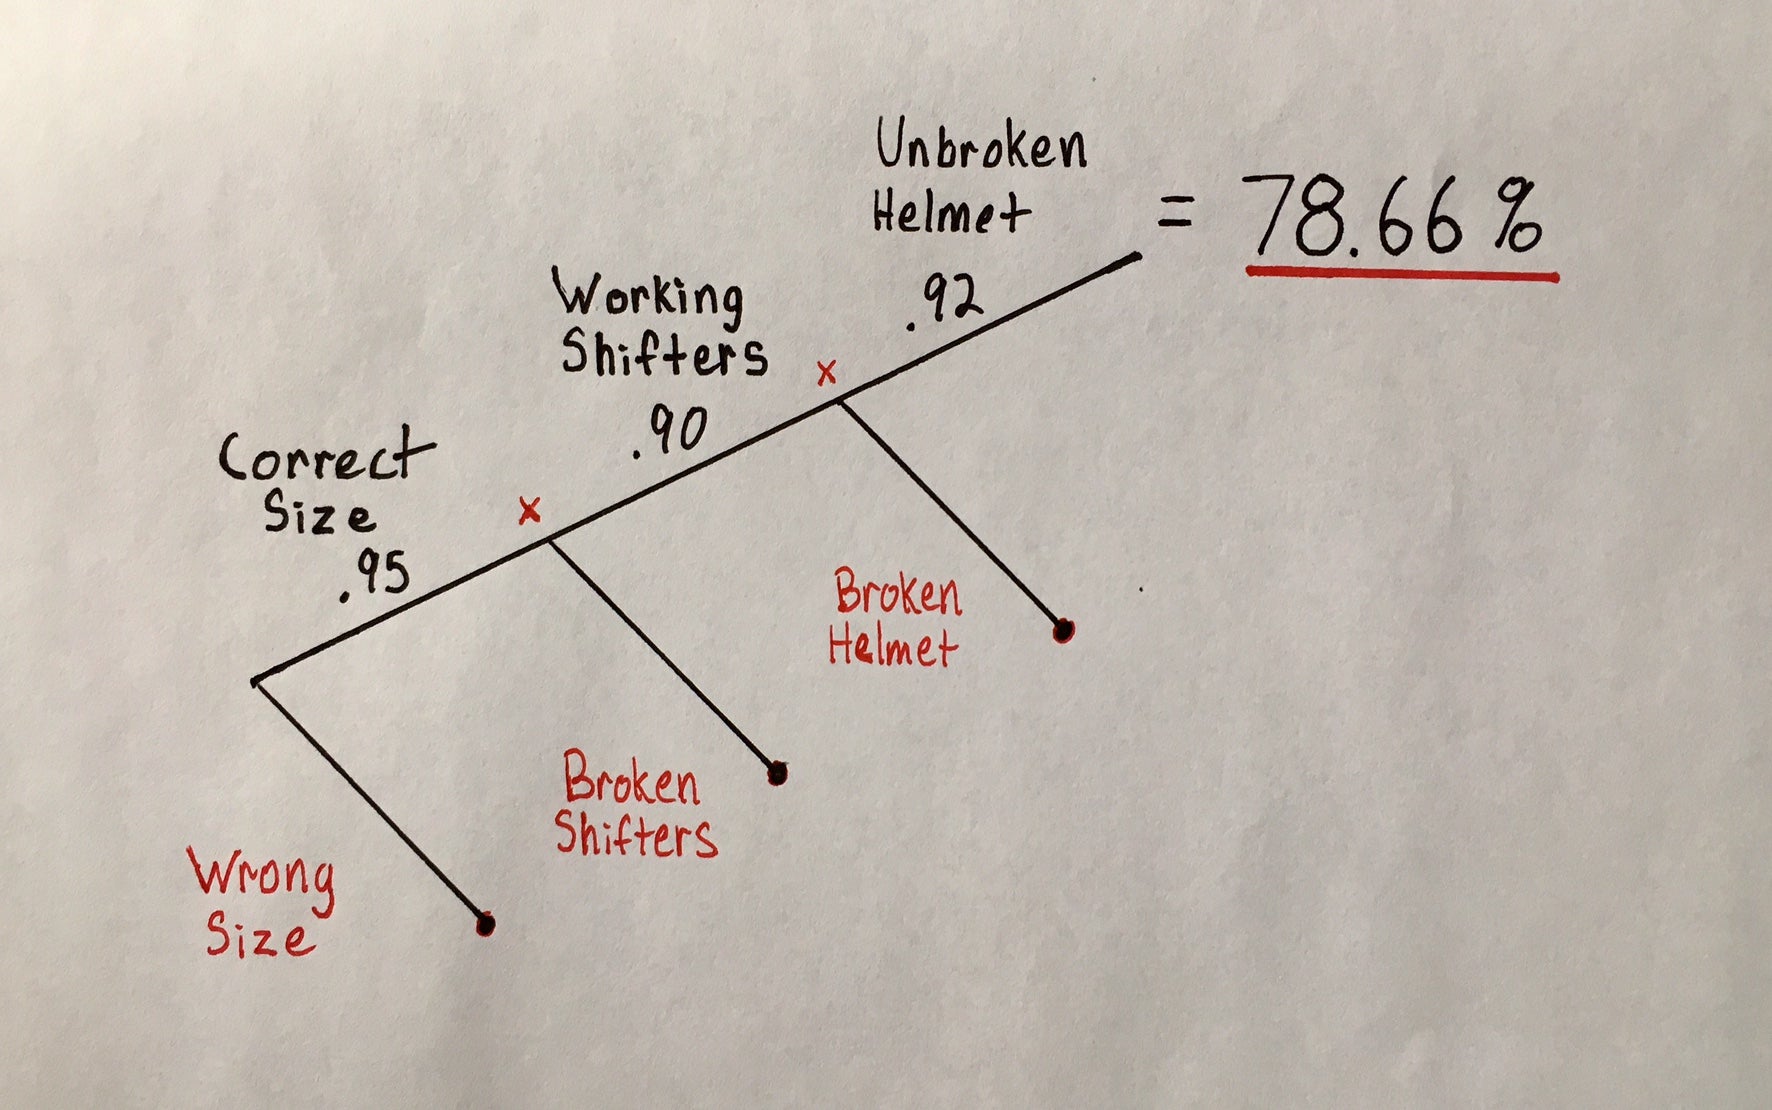 Unbroken
Helmet
= 78.66 %
.92
Working
Shifters
x
.90
Correct
Size
x
.95
Broken
Helmet
Broken
Shifters
Wrong
Size